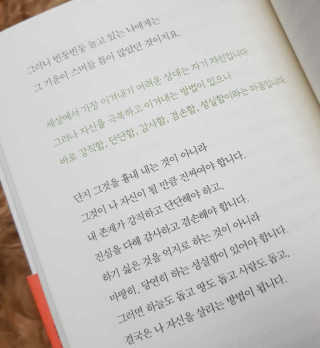 그러나 빈둥빈둥 놀고 있는 나에게는
그 기운이 스며들 틈이 없었던 것이지요.
세상에서 가장 이겨내기 어려운 상대는 자기 자신입니다.
그러나 자신을 극복하고 이겨내는 방법이 있으니
바로 강직함, 단단함, 감사함, 겸손함, 성실함이라는 마음입니다.
단지 그것을 흉내 내는 것이 아니라
그것이 나 자신이 될 만큼 진짜여야 합니다.
내 존재가 강직하고 단단해야 하고,
진심을 다해 감사하고 겸손해야 합니다.
하기 싫은 것을 억지로 하는 것이 아니라
마땅히, 당연히 하는 성실함이 있어야 합니다.
그러면 하늘도 돕고 땅도 돕고 사람도 돕고,
결국은 나 자신을 살리는 방법이 됩니다.